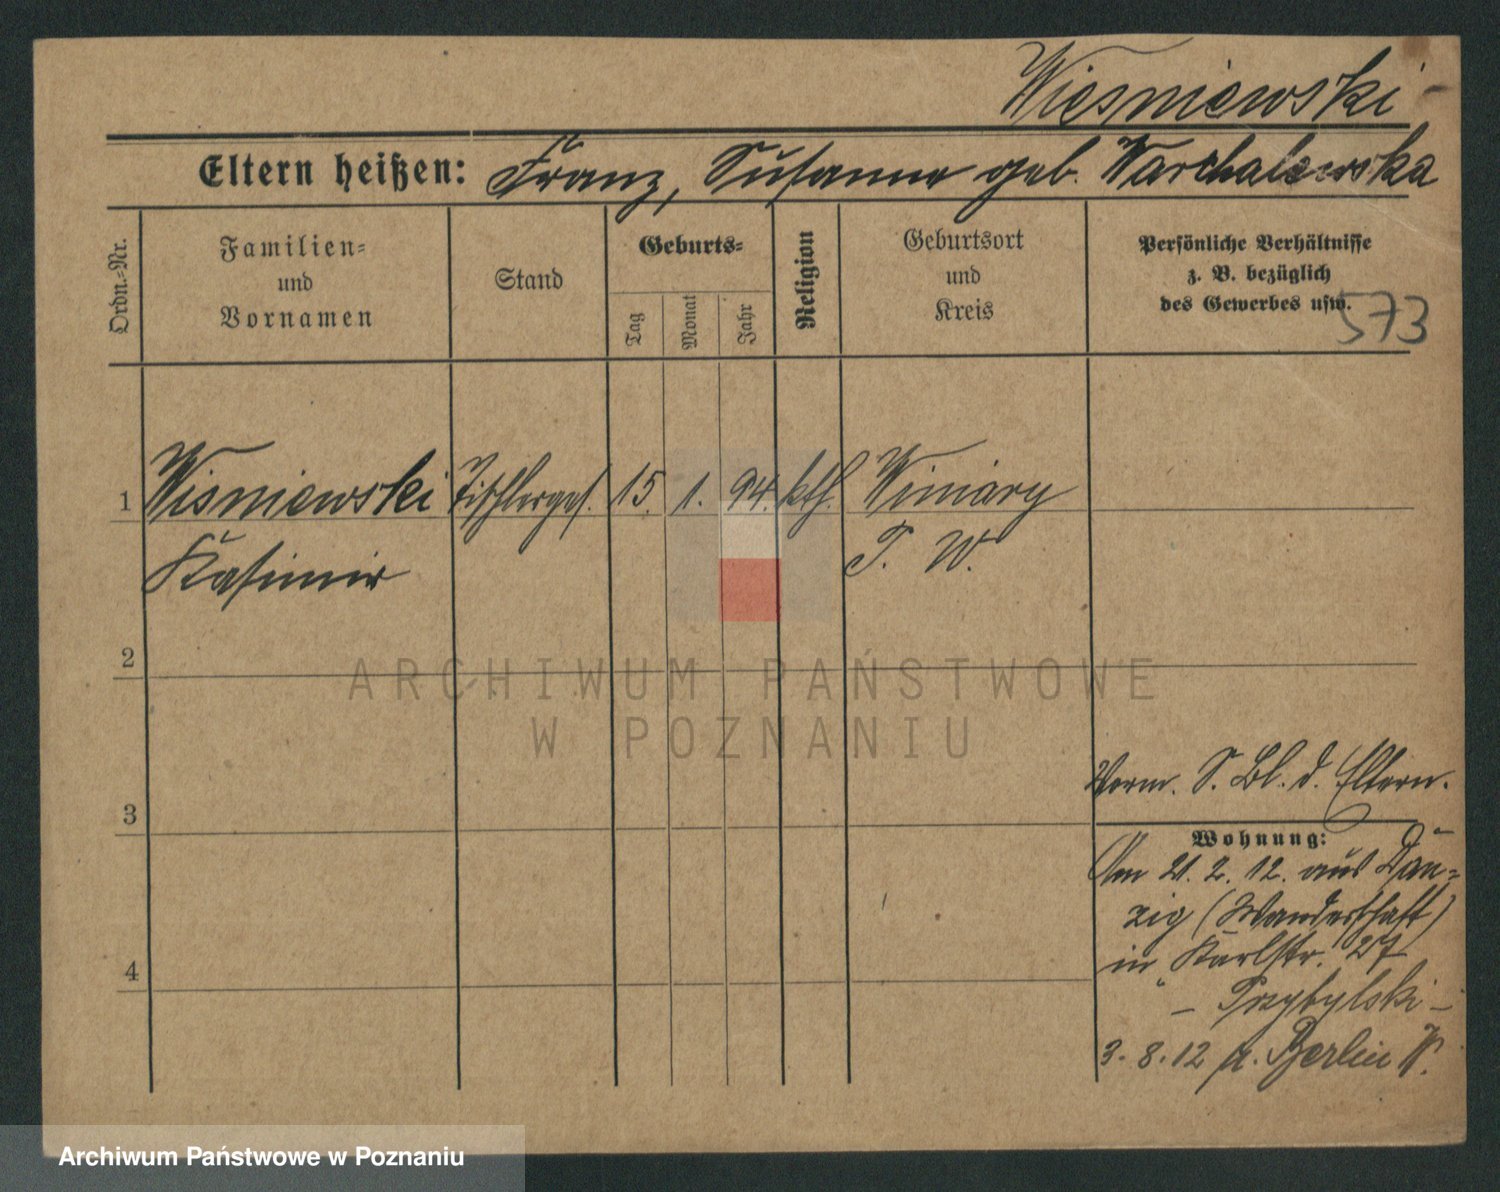 Wiesniewski
Eltern heißen: Franz, Susanna geb. Warchalewska
Ordn.-Nr.
Familien-
und
Vornamen
Stand
Geburts-
Tag
Monat
Jahr
Religion
Geburtsort
und
Kreis
Persönliche Verhältnisse
z. B. bezüglich
des Gewerbes usw.
573
1 Wisniewski Tischlerges. 15. 1. 94. kth. Winiary
Kasimir P. W.
2
3
4
Verm. S. Bl. d. Eltern.
Wohnung:
Am 21. 2. 12. aus Dan-
zig (Wanderschaft)
in Karlstr. 27
- Przybylski -
3. 8. 12 n. Berlin
ARCHIWUM PAŃSTWOWE
W POZNANIU
Archiwum Państwowe w Poznaniu